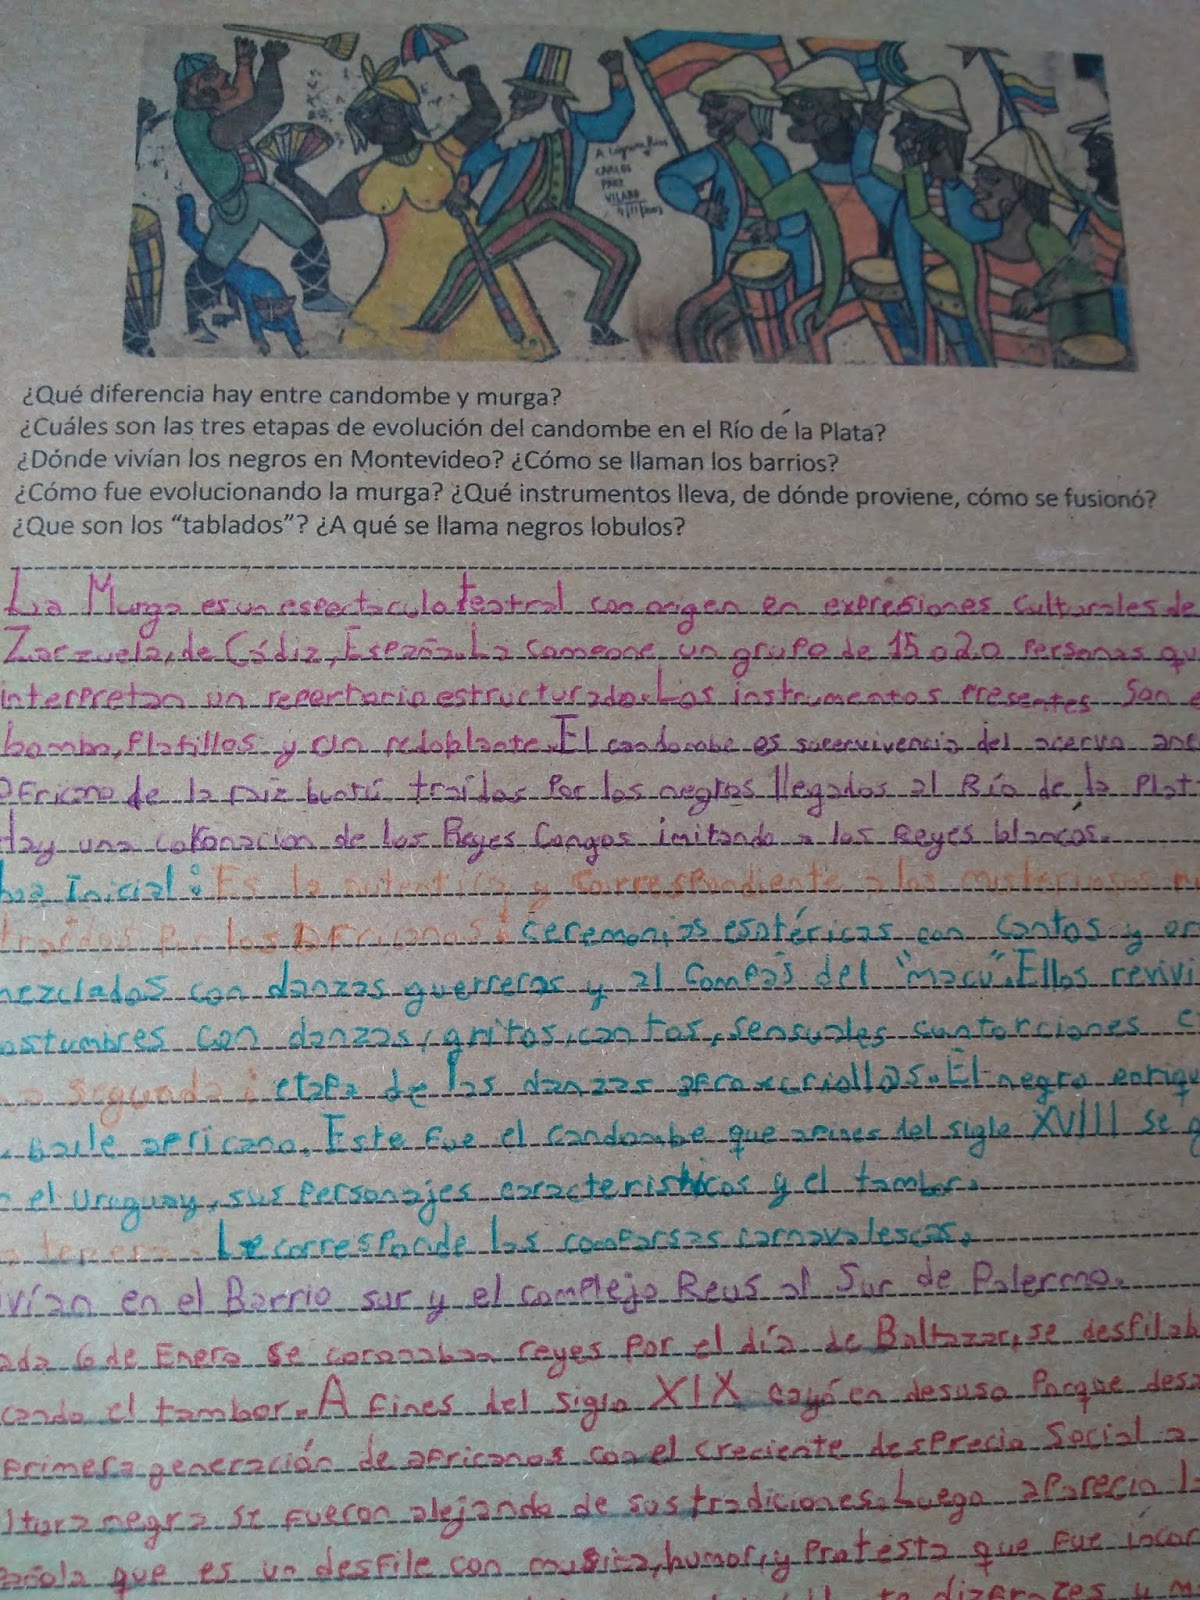 CARLOS
PAEZ
VILARO
¿Qué diferencia hay entre candombe y murga?
¿Cuáles son las tres etapas de evolución del candombe en el Río de la Plata?
¿Dónde vivían los negros en Montevideo? ¿Cómo se llaman los barrios?
¿Cómo fue evolucionando la murga? ¿Qué instrumentos lleva, de dónde proviene, cómo se fusionó?
¿Que son los “tablados”? ¿A qué se llama negros lobulos?
La Murga es un espectaculo teatral con origen en expresiones culturales de
Zarzuela, de Cádiz, España. La compone un grupo de 15 o 20 personas qu
interpretan un repertorio estructurado. Los instrumentos presentes son e
bombo, platillos y un redoblante. El candombe es supervivencia del acervo anc
africano de la raiz buntú traídos por los negros llegados al Río de la Plat
Hay una coronacion de los Reyes Congos imitando a los Reyes blancos.
Inicial: Es la autentica y correspondiente a los misteriosos
traídos por los africanos: ceremonias esotéricas con cantos y or
mezclados con danzas guerreras y al compás del "macú". Ellos reviví
ostumbres con danzas, gritos, cantos, sensuales contorciones
segunda: etapa de las danzas afroxcriollas. El negro enriqu
baile africano. Este fue el candombe que afines del siglo XVIII se
el Uruguay, sus personajes caracteristicos y el tambor.
tercera: Le corresponde las comparsas carnavalescas.
vían en el Barrio sur y el complejo Reus al Sur de Palermo.
ada 6 de Enero se coronaban reyes por el día de Baltazar, se desfilab
cando el tambor. A fines del siglo XIX cayó en desuso porque desa
primera generación de africanos con el creciente desprecio Social a
ltura negra se fueron alejando de sus tradiciones. Luego aparecio la
añola que es un desfile con musica, humor, y protesta que fue incor